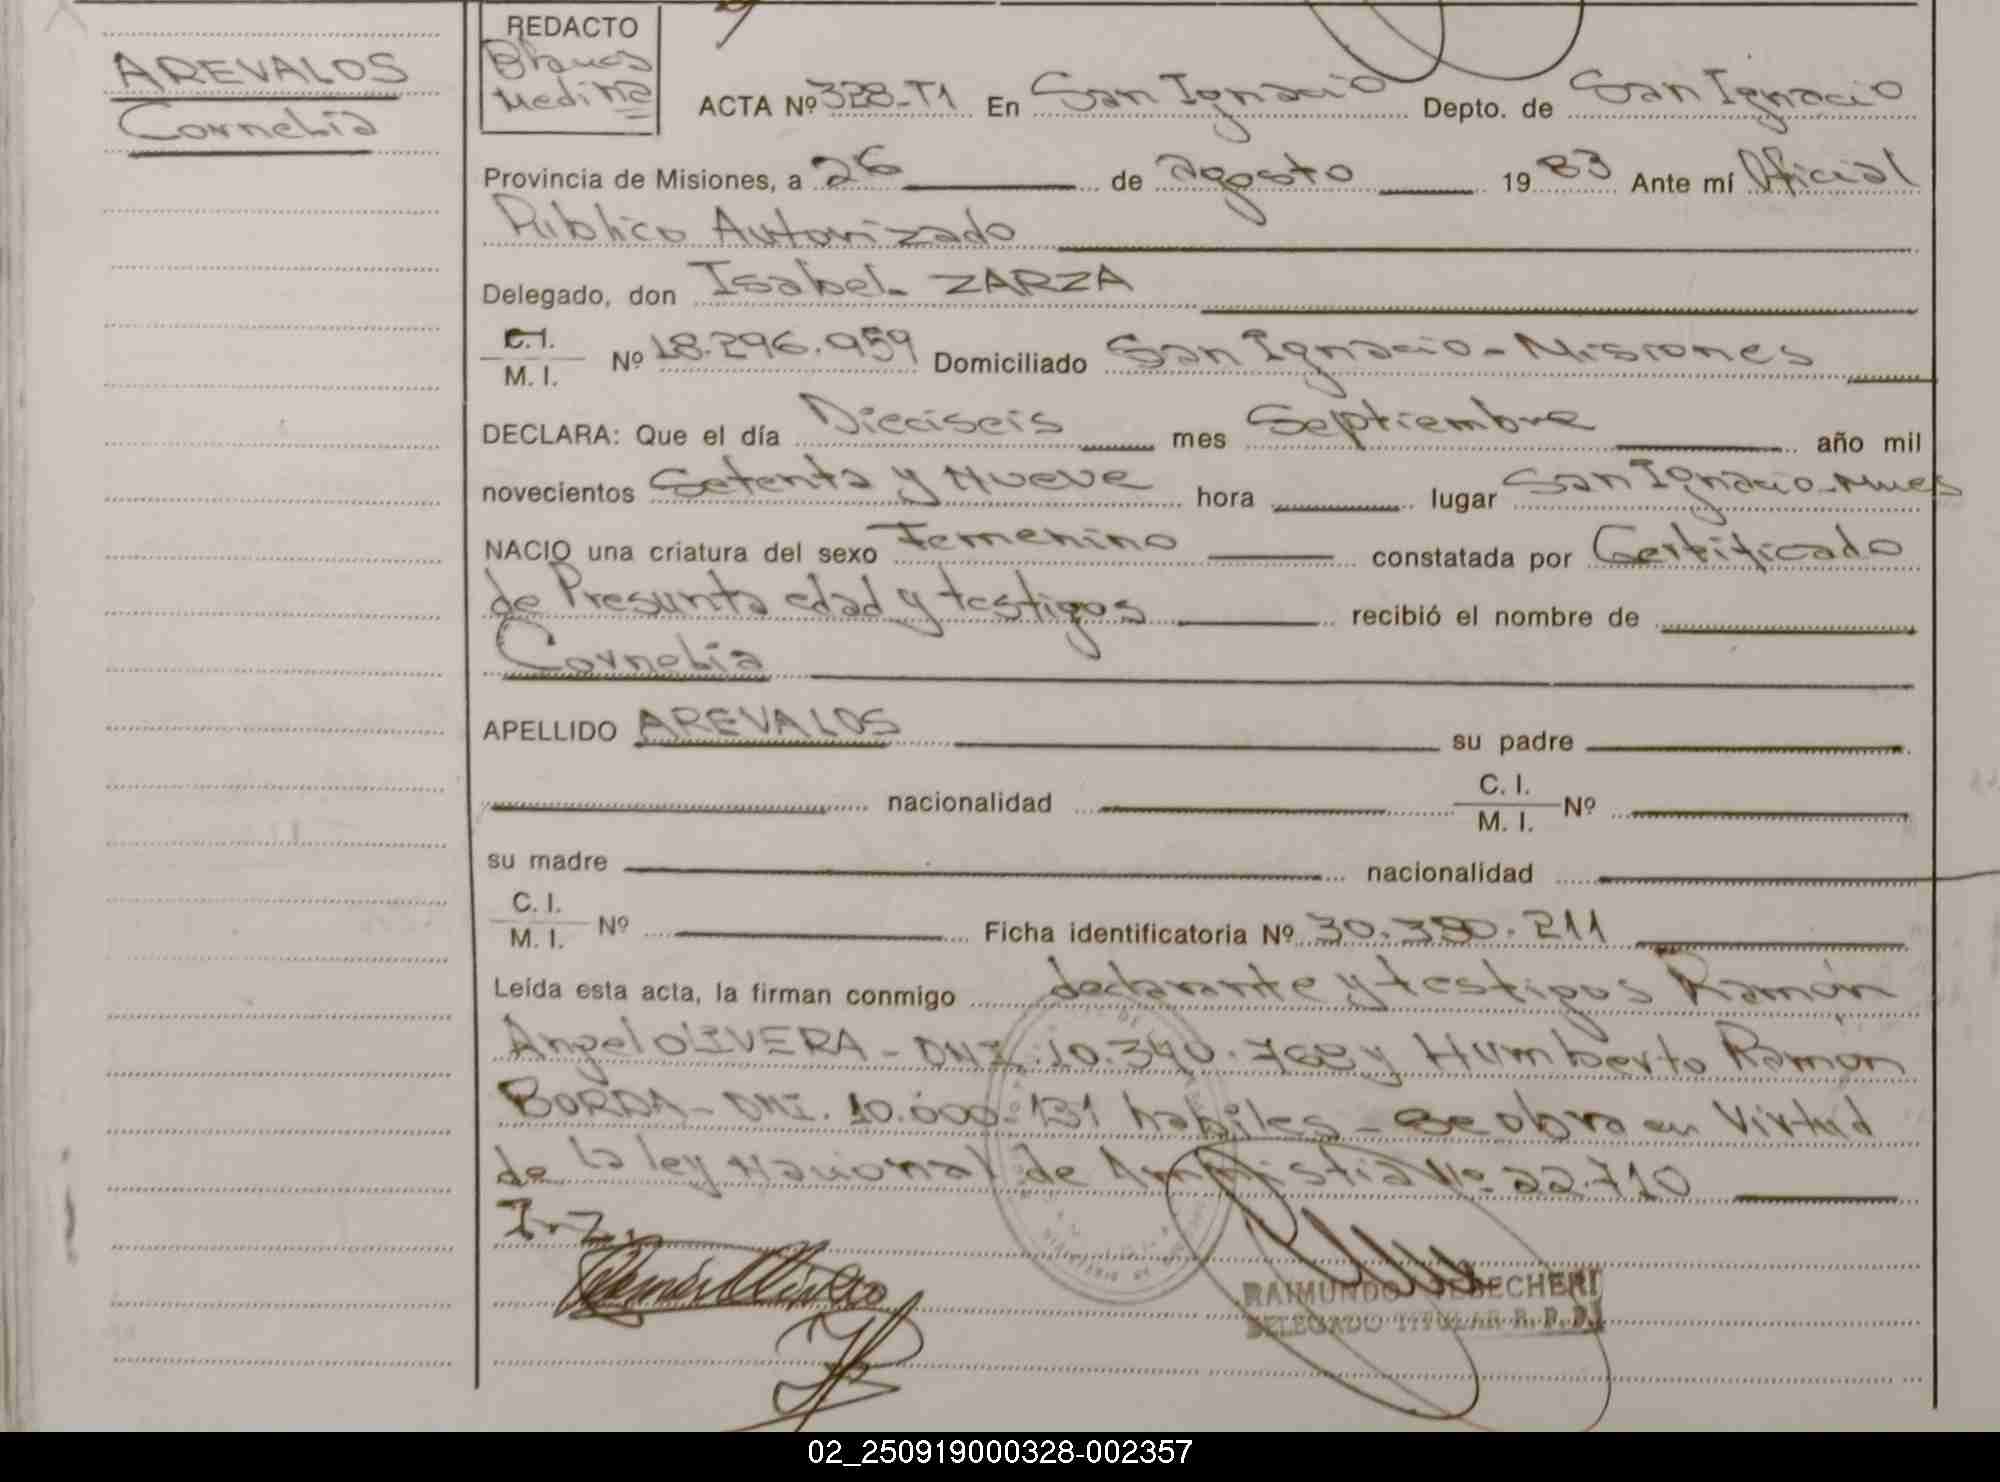 AREVALOS
Cornelia
REDACTO
Blanca
Medina
ACTA Nº 328-T1 En San Ignacio Depto. de San Ignacio
Provincia de Misiones, a 26 de agosto 19 83 Ante mí Oficial
Público Autorizado
Delegado, don Isabel ZARZA
C.I.
M. I. Nº 18.296.959 Domiciliado San Ignacio - Misiones
DECLARA: Que el día Dieciseis mes Septiembre año mil
novecientos Setenta y Nueve hora lugar San Ignacio - Mnes
NACIO una criatura del sexo Femenino constatada por Certificado
de Presunta edad y testigos recibió el nombre de
Cornelia
APELLIDO AREVALOS su padre
nacionalidad C. I.
M. I. Nº
su madre nacionalidad
C. I.
M. I. Nº Ficha identificatoria Nº 30.380.211
Leída esta acta, la firman conmigo declarante y testigos Ramón
Angel OLIVERA - DNI. 10.340.768 y Humberto Ramón
BORDA - DNI. 10.600.131 habiles - Se obra en Virtud
de la ley Nacional de Amnistia Nº 22.710
I-Z.
RAIMUNDO
DELEGADO TITULAR R. P. P.
02_250919000328-002357